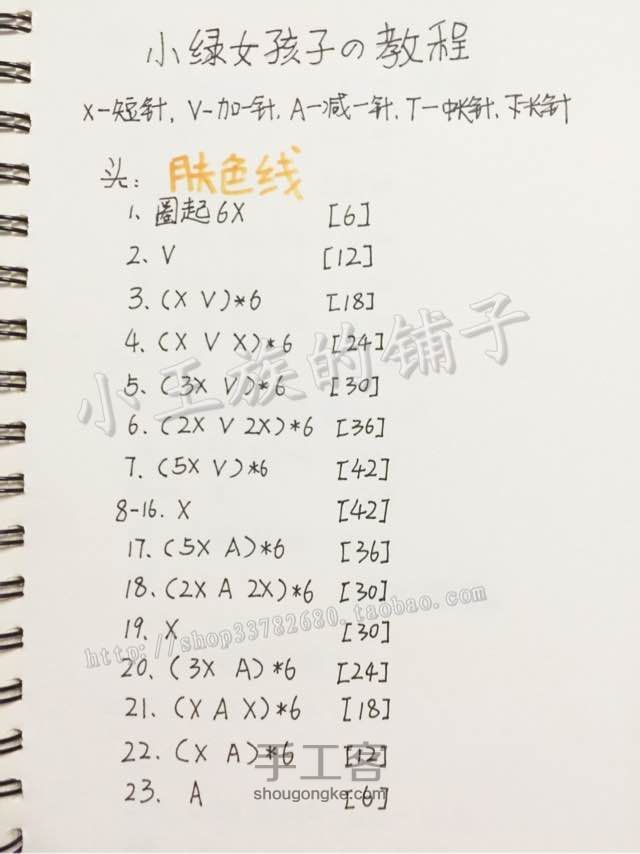 小绿女孩子の教程
X-短针, V-加一针, A-减一针, T-中长针, 下长针
头: 肤色线
1、圈起6X [6]
2、V [12]
3、(X V)*6 [18]
4、(X V X)*6 [24]
5、(3X V)*6 [30]
6、(2X V 2X)*6 [36]
7、(5X V)*6 [42]
8-16. X [42]
17、(5X A)*6 [36]
18、(2X A 2X)*6 [30]
19、X [30]
20、(3X A)*6 [24]
21、(X A X)*6 [18]
22、(X A)*6 [12]
23、A [6]
小王族的铺子
http://shop33782680.taobao.com
手工客
shougongke.com